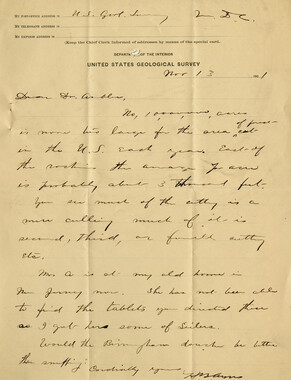 MY PERMANENT ADDRESS IS U.S. Geol. Survey
MY TELEGRAPH ADDRESS IS
MY EXPRESS ADDRESS IS
(Keep the Chief Clerk informed of addresses by means of the special card.)
DEPARTMENT OF THE INTERIOR
UNITED STATES GEOLOGICAL SURVEY
Nov 13
Dear Dr.
No, 10,000,000 acres
is none too large for the area of forest cut
in the U.S. each year. East of
the rockies the average per acre
is probably about 3 thousand feet.
You see much of the cutting is a
mere culling much of it is
second, third, or fourth cutting
etc.
Mrs A is at my old home in
New Jersey now. She has not been able
to find the tablets you directed
so I got her some of
Would the Birmingham douche be better
than snuffing? Cordially yours,